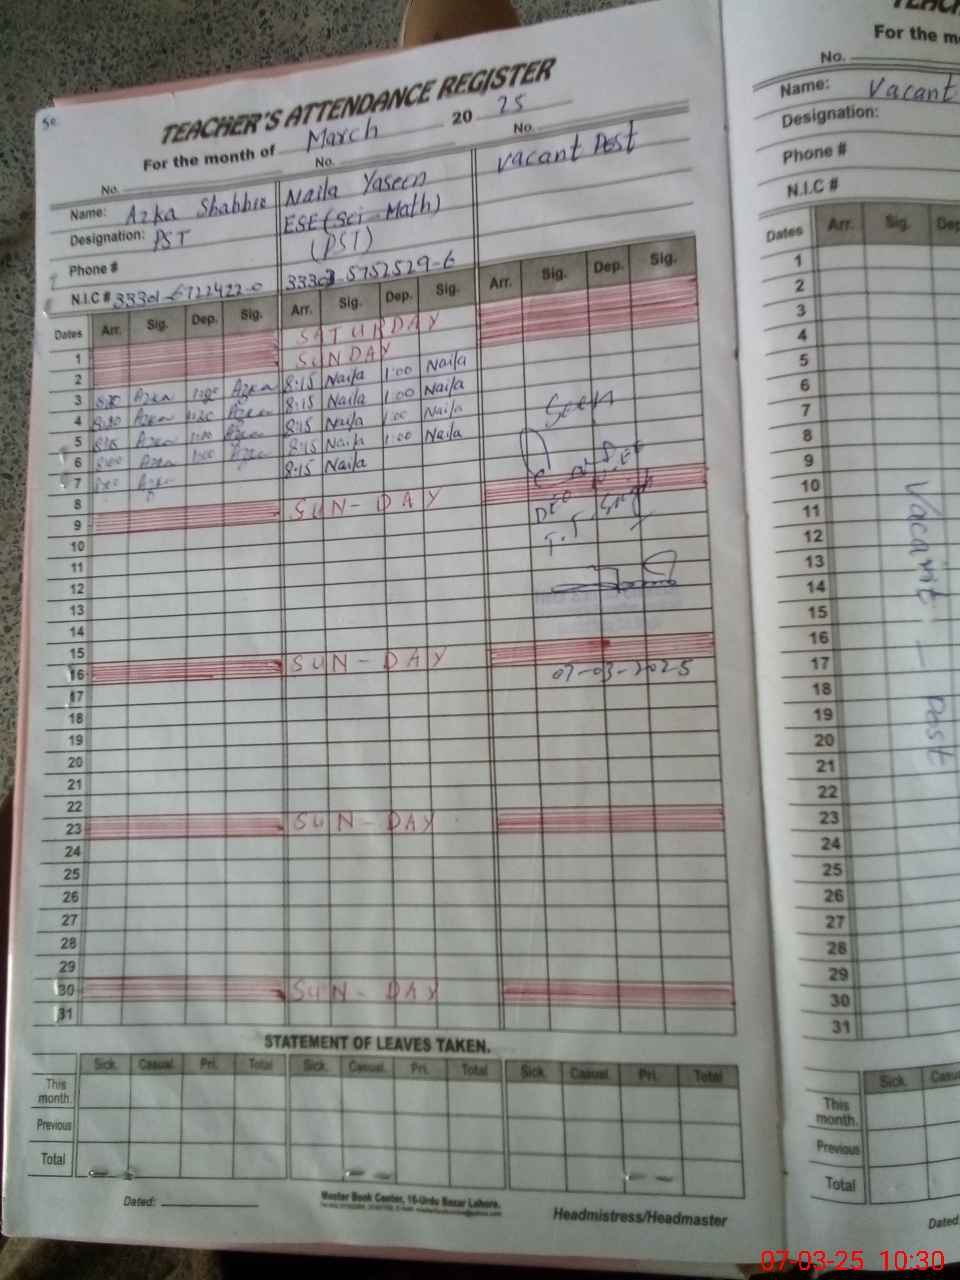 TEACHER'S ATTENDANCE REGISTER
For the month of March 20 25
No. No. No.
Name: Azka Shabbir Naila Yaseen Vacant Post
Designation: PST ESE (Sci-Math)
(PST)
Phone #
N.I.C # 33301-6722422-0 33303-5752529-6
Dates Arr. Sig. Dep. Sig. Arr. Sig. Dep. Sig. Arr. Sig. Dep. Sig.
1 SATURDAY
2 SUNDAY
3 Azka Azka 8:15 Naila 1:00 Naila
4 Azka Azka 8:15 Naila 1:00 Naila
5 Azka Azka 8:15 Naila 1:00 Naila
6 Azka Azka 8:15 Naila 1:00 Naila
7 Azka 8:15 Naila
8
9 SUN-DAY
10
11
12
13
14
15
16 SUN-DAY
17
18
19
20
21
22
23 SUN-DAY
24
25
26
27
28
29
30 SUN-DAY
31
Seen
T.T. Singh
07-03-2025
STATEMENT OF LEAVES TAKEN.
Sick. Casual. Pri. Total Sick. Casual. Pri. Total Sick. Casual. Pri. Total
This month.
Previous
Total
Dated:
Master Book Center, 16-Urdu Bazar Lahore.
Headmistress/Headmaster
For the m
No.
Name: Vacant
Designation:
Phone #
N.I.C #
Dates Arr. Sig. Dep
1
2
3
4
5
6
7
8
9
10
11
12
13
14
15
16
17
18
19
20
21
22
23
24
25
26
27
28
29
30
31
Vacant - Post
Sick. Casu
This month.
Previous
Total
Dated:
07-03-25 10:30